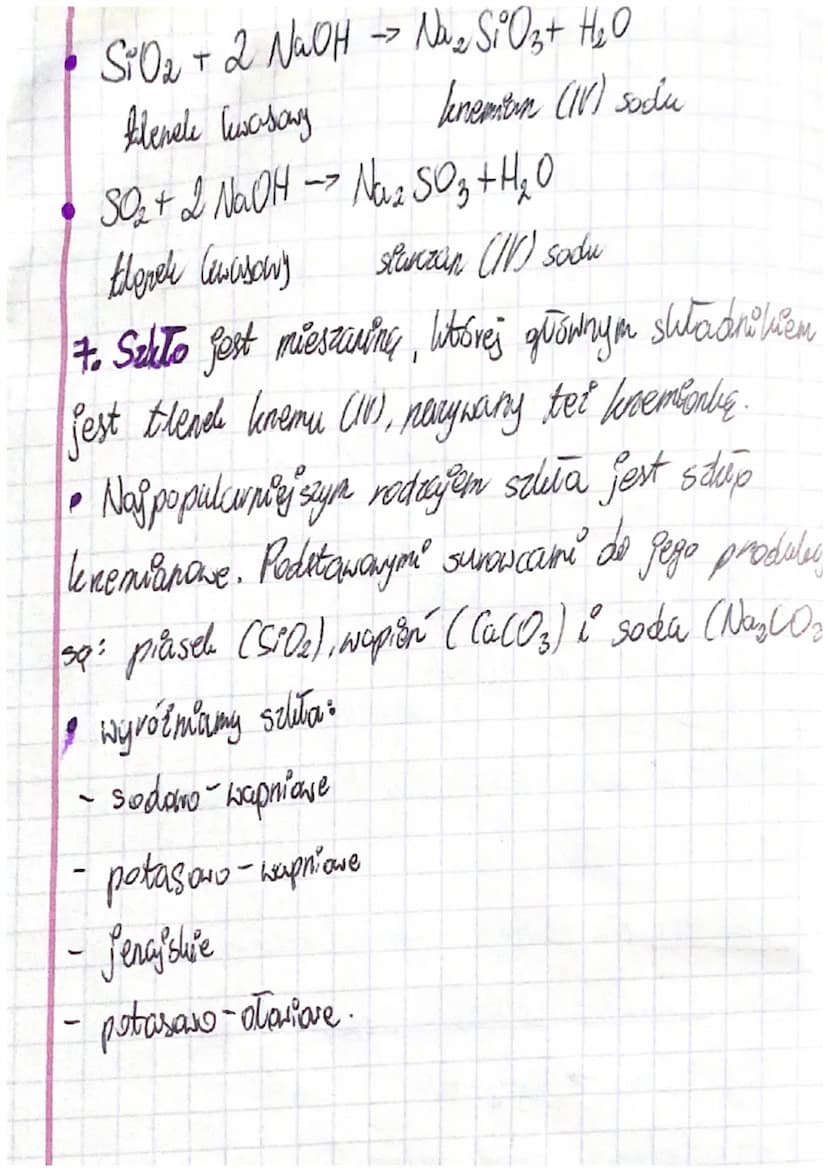 • SiO₂ + 2 NaOH → Na₂SiO₃ + H₂O
tlenek kwasowy krzemian (IV) sodu
• SO₂ + 2 NaOH → Na₂SO₃ + H₂O
tlenek kwasowy siarczan (IV) sodu
7. Szkło jest mieszaniną, której głównym składnikiem
jest tlenek krzemu (IV), nazywany też krzemionką.
• Najpopularniejszym rodzajem szkła jest szkło
krzemianowe. Podstawowymi surowcami do jego
są: piasek (SiO₂), wapień (CaCO₃) i soda (Na₂CO₃
• wyróżniamy szkła:
- sodowo-wapniowe
- potasowo-wapniowe
- jenajskie
- potasowo-ołowiowe.